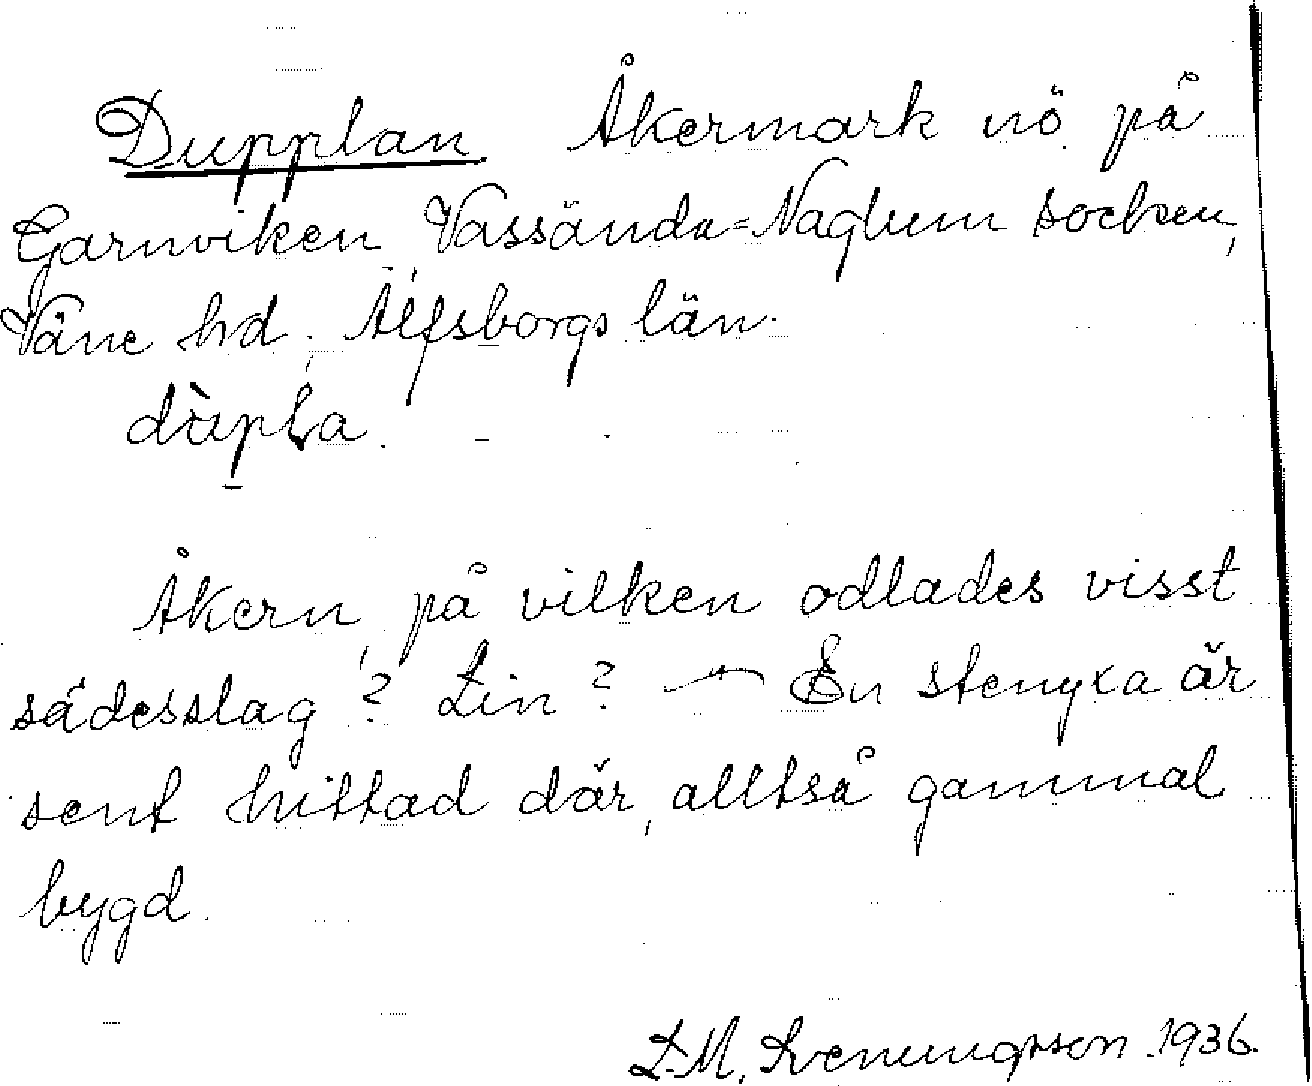 Dupplan Åkermark nö på
Garnviken Vassända=Naglum socken,
Väne hd, Älfsborgs län.
dùpla.
Åkern, på vilken odlades visst
sädesslag? Lin? — En stenyxa är
sent hittad där, alltså gammal
bygd.
L.M. Svenungsson. 1936.